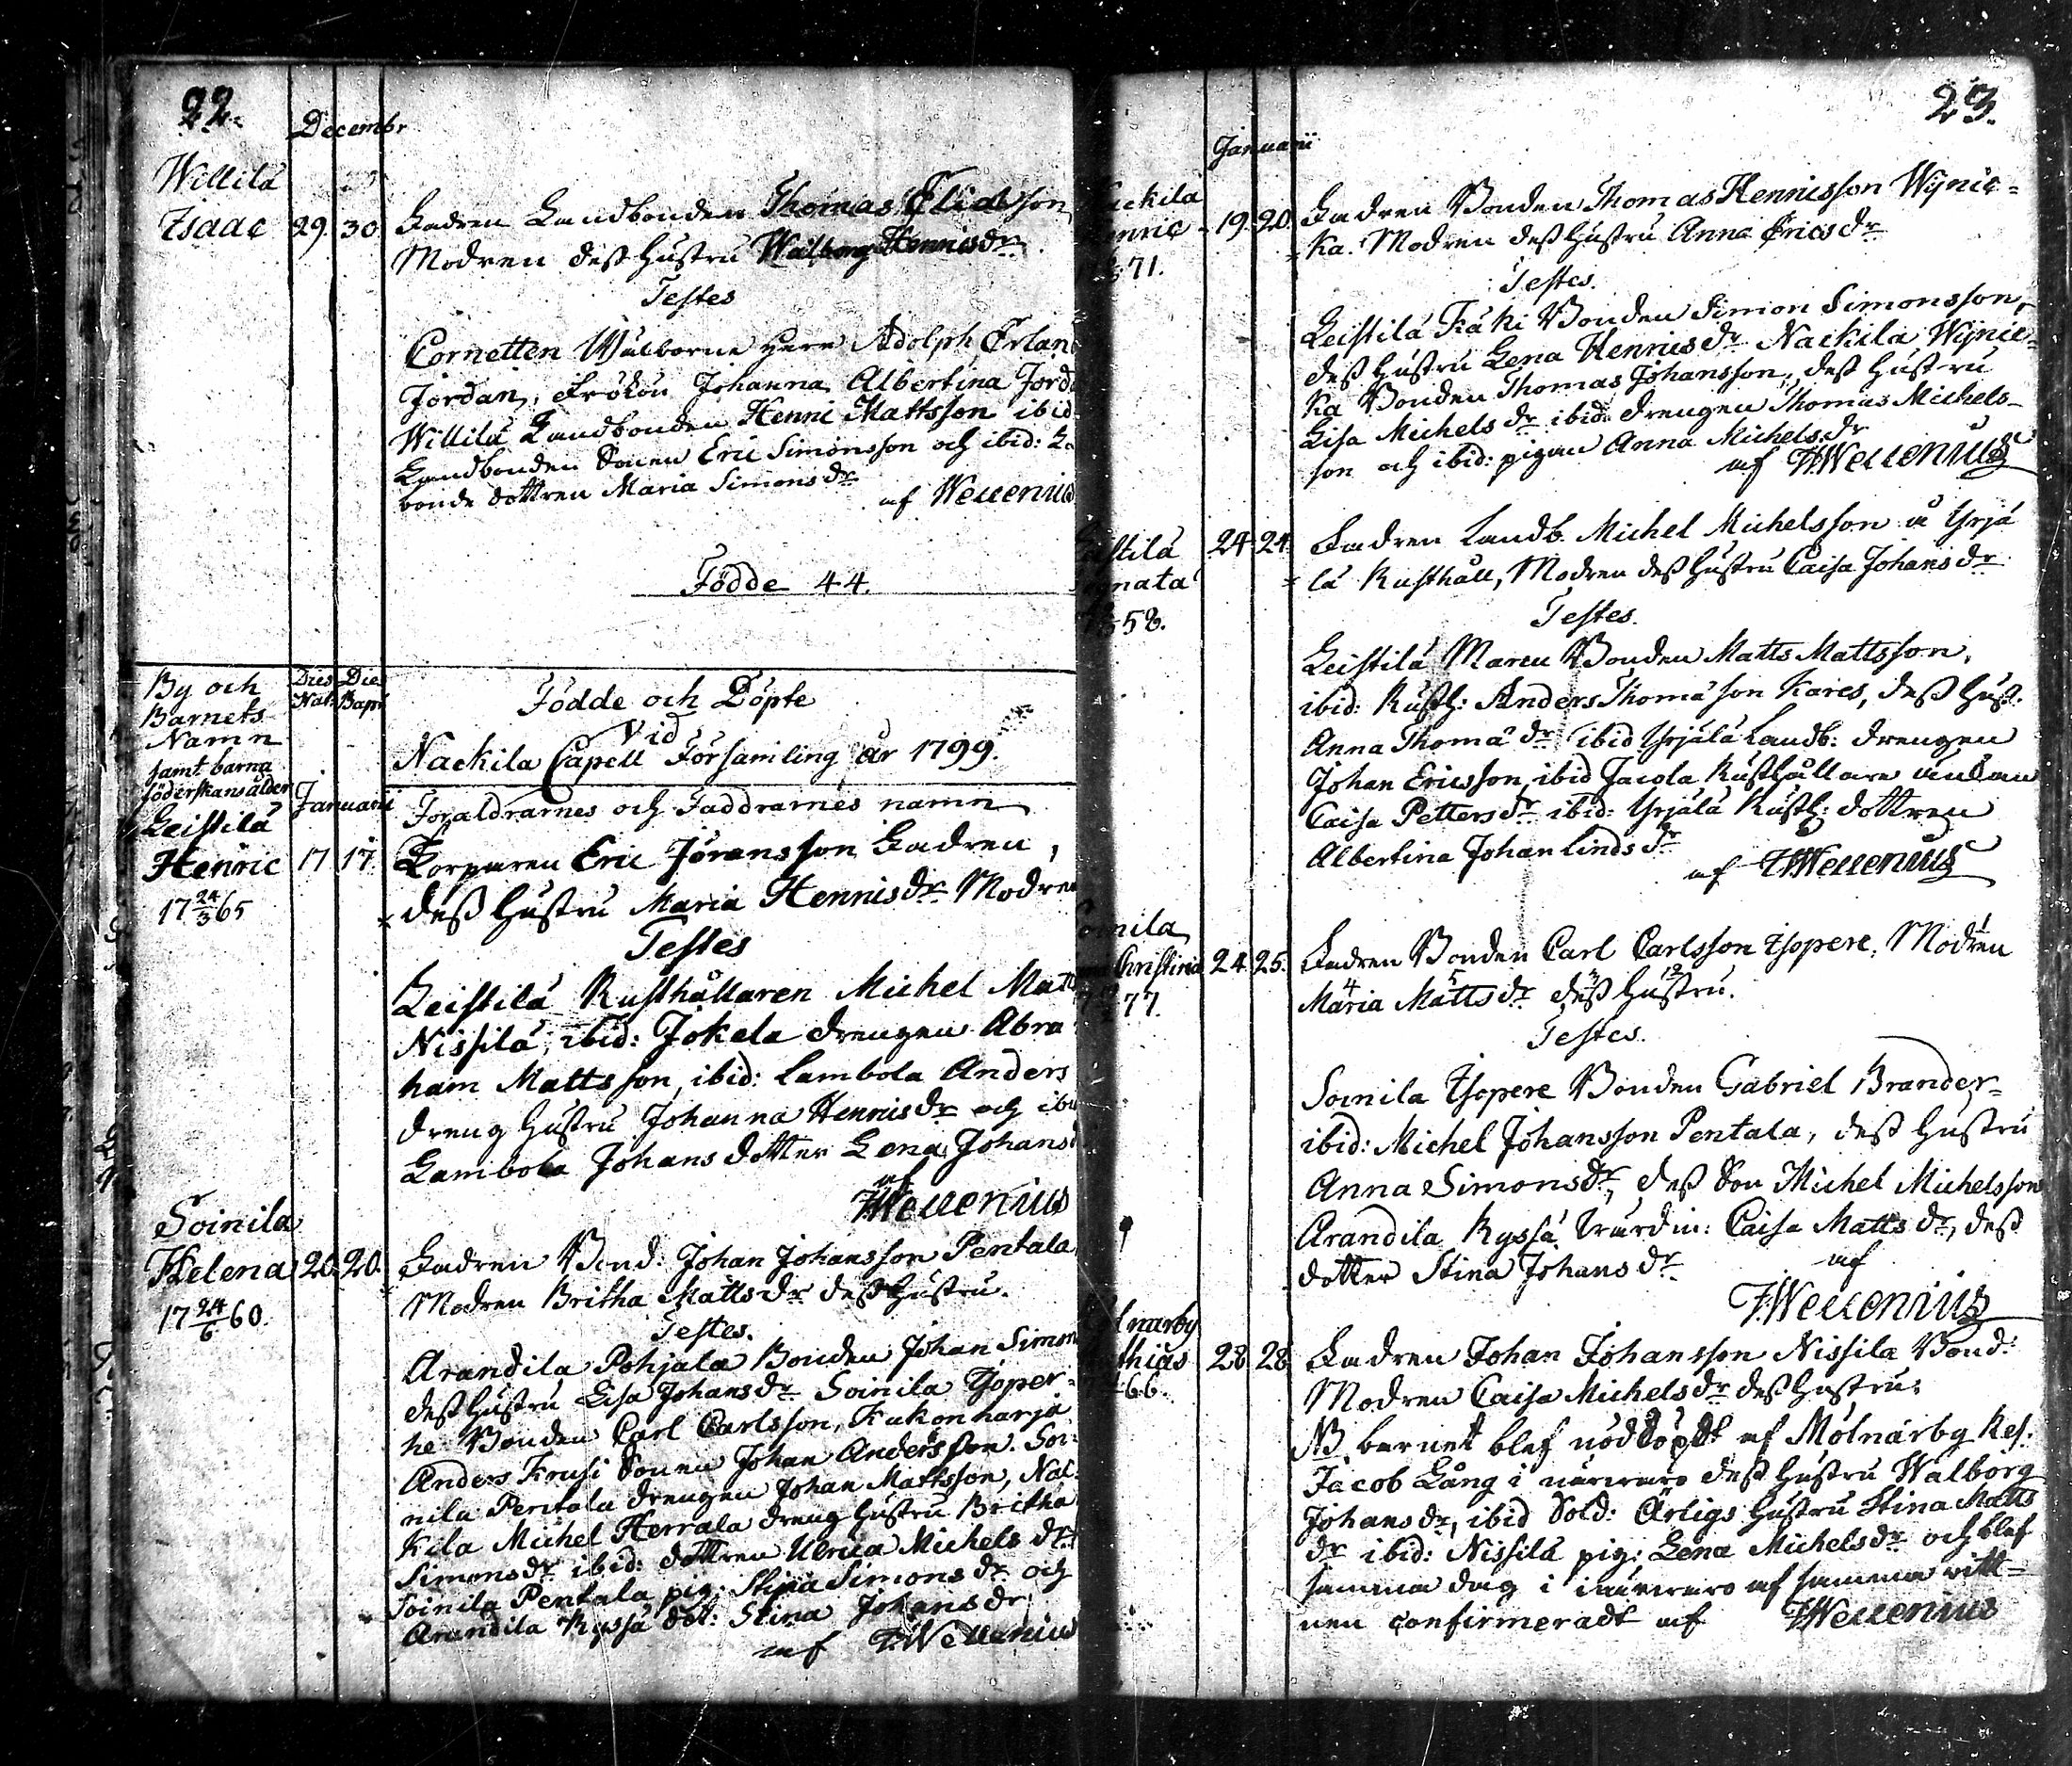 22.
Decembr
Willilä
Isaac 29. 30. Fadren Landbonden Thomas Eliasson
Modren deß Hustru Walborg Henricsdr
Testes
Cornetten Wälborne Herr Adolph Erland
Jordan, Fröken Johanna Albertina Jord
Willilä Landbonden Henric Mattsson ibid
Landbonden Sonen Eric Simonsson och ibid: La
bonde dottren Maria Simonsdr
af Wellenius
Födde 44.
By och
Barnets
Namn
samt barna
föderskans ålder
Dies Nat:
Dies Bapt
Födde och Döpte
Vid
Nackila Capell Församling år 1799.
Januarii
Föräldrarnes och Faddrarnes namn
Leistilä
Henric 17 17. Torparen Eric Jöransson Fadren,
17 24/3 65
deß Hustru Maria Henricsdr Modren
Testes
Leistilä Rusthållaren Michel Matts
Nissilä, ibid: Jokela drengen Abra
ham Mattsson, ibid: Lambola Anders
dreng Hustru Johanna Henricsdr och ibid
Lambola Johans dotter Lena Johans
af
FWellenius
Soinila
Helena 20. 20. Fadren Bond: Johan Johansson Pentala
17 24/6 60.
Modren Britha Mattsdr deß Hustru.
Testes.
Arandila Pohjala Bonden Johan Simon
deß Hustru Lisa Johansdr Soinila Isoper-
he Bonden Carl Carlsson, Kukonharja
Anders Krusi Sonen Johan Andersson. Soi-
nila Pentala drengen Johan Mattsson, Nac-
kila Michel Herrala dreng Hustru Britha
Simonsdr ibid: dottren Ulrica Michelsdr
Soinila Pentala pig: Stina Simonsdr och
Arandila Ryssä dot: Stina Johansdr
af FWellenius
23.
Januarii
ackila
enric 19. 20. Fadren Bonden Thomas Henricsson Wijnic-
71.
ka. Modren deß Hustru Anna Ericsdr
Testes.
Leistilä Käki Bonden Simon Simonsson,
deß Hustru Lena Henricsdr Nackila Wijnic-
ka Bonden Thomas Johansson, deß Hustru
Lisa Michelsdr ibid: drengen Thomas Michels-
son och ibid: pigan Anna Michelsdr
af FWellenius
istilä 24 24. Fadren Landb. Michel Michelsson å Yrjä
nata
lä Rusthåll, Modren deß Hustru Caisa Johansdr
58.
Testes.
Leistilä Maren Bonden Matts Mattsson,
ibid: Rusth: Anders Thomasson Kares, deß Hust:
Anna Thomädr ibid Yrjälä Landb: drengen
Johan Ericsson, ibid Jacola Rusthållare änkan
Caisa Pettersdr ibid: Yrjälä Rusth: dottren
Albertina Johan Lindsdr
af FWellenius
oinila
Christina 24. 25. Fadren Bonden Carl Carlsson Isopere, Modren
77.
4 5 3 2
Maria Mattsdr deß Hustru.
Testes.
Soinila Isopere Bonden Gabriel Brander-
ibid: Michel Johansson Pentala, deß Hustru
Anna Simonsdr, deß Son Michel Michelsson
Arandila Ryssä Wärdin: Caisa Mattsdr, deß
dotter Stina Johansdr
af
FWellenius
lnarby
thias 28 28 Fadren Johan Johansson Nissila Bond:
66.
Modren Caisa Michelsdr deß Hustru:
NB barnet blef nöddöpt af Mölnärby Res:
Jacob Lång i närwaro deß Hustru Walborg
Johansdr, ibid Sold: Ärligs Hustru Stina Matts
dr ibid: Nissilä pig: Lena Michelsdr och blef
samma dag i närwaro af samma witt-
nen confirmeradt af FWellenius